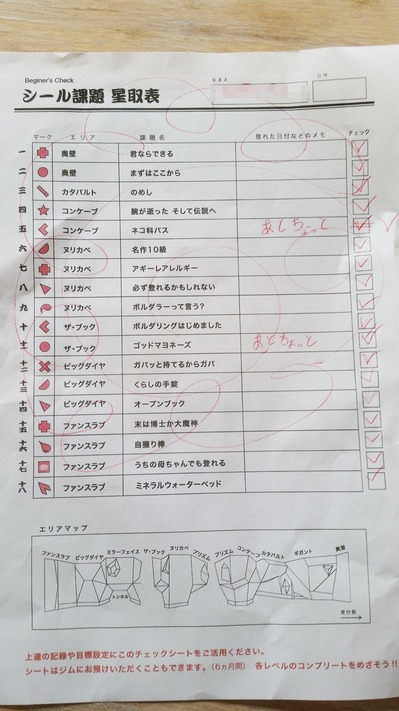 Beginer's Check
シール課題 星取表
お名前
日付
マーク エリア 課題名 登れた日付などのメモ チェック
一 奥壁 君ならできる
二 奥壁 まずはここから
三 カタパルト のめし
四 コンケーブ 腕が逝った そして伝説へ
五 コンケーブ ネコ科バス あとちょっと
六 ヌリカベ 名作10級
七 ヌリカベ アギーレアレルギー
八 ヌリカベ 必ず登れるかもしれない
九 ヌリカベ ボルダラーって言う?
十 ザ・ブック ボルダリングはじめました
十一 ザ・ブック ゴッドマヨネーズ あとちょっと
十二 ビッグダイヤ ガバッと持てるからガバ
十三 ビッグダイヤ くらしの手錠
十四 ビッグダイヤ オープンブック
十五 ファンスラブ 末は博士か大魔神
十六 ファンスラブ 自撮り棒
十七 ファンスラブ うちの母ちゃんでも登れる
十八 ファンスラブ ミネラルウォーターベッド
エリアマップ
ファンスラブ ビッグダイヤ ミラーフェイス ザ・ブック ヌリカベ プリズム プリズム コンケーブ カタパルト ギガント 奥壁
トンネル
受付側
上達の記録や目標設定にこのチェックシートをご活用ください。
シートはジムにお預けいただくこともできます。(6ヵ月間) 各レベルのコンプリートをめざそう!!